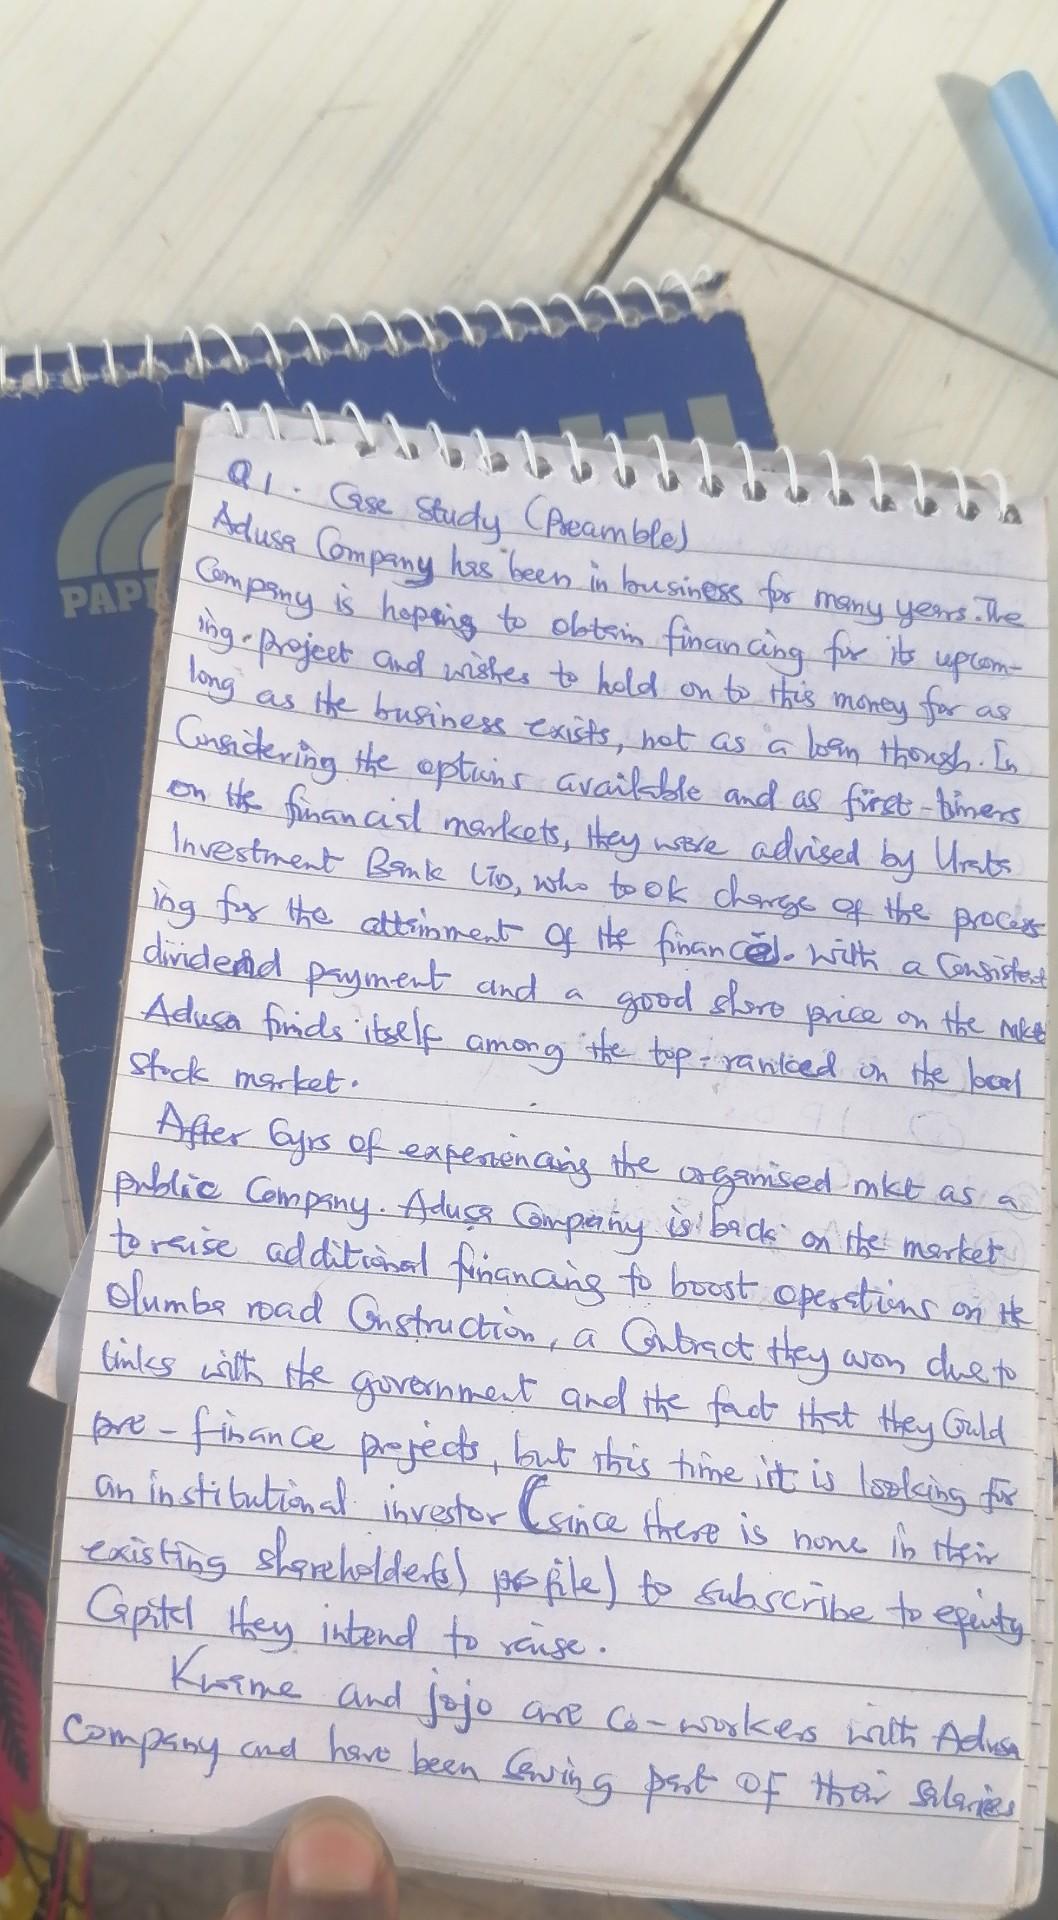 PAP
Q1. Case Study (Preamble)
Adusa Company has been in business for many years. The
Company is hoping to obtain financing for its upcom-
ing project and wishes to hold on to this money for as
long as the business exists, not as a loan though. In
Considering the options available and as first-timers
on the financial markets, they were advised by
Investment Bank LTD, who took charge of the process
ing for the attainment of the finance. With a Consistent
dividend payment and a good share price on the mkt
Adusa finds itself among the top-ranked on the local
stock market.
After 6yrs of experiencing the organised mkt as a
public Company. Adusa Company is back on the market
to raise additional financing to boost operations on the
Olumba road Construction, a Contract they won due to
links with the government and the fact that they Could
pre-finance projects, but this time, it is looking for
an institutional investor (since there is none in their
existing shareholder(s) profile) to subscribe to equity
Capital they intend to raise.
Kwame and jojo are Co-workers with Adusa
Company and have been saving part of their salaries